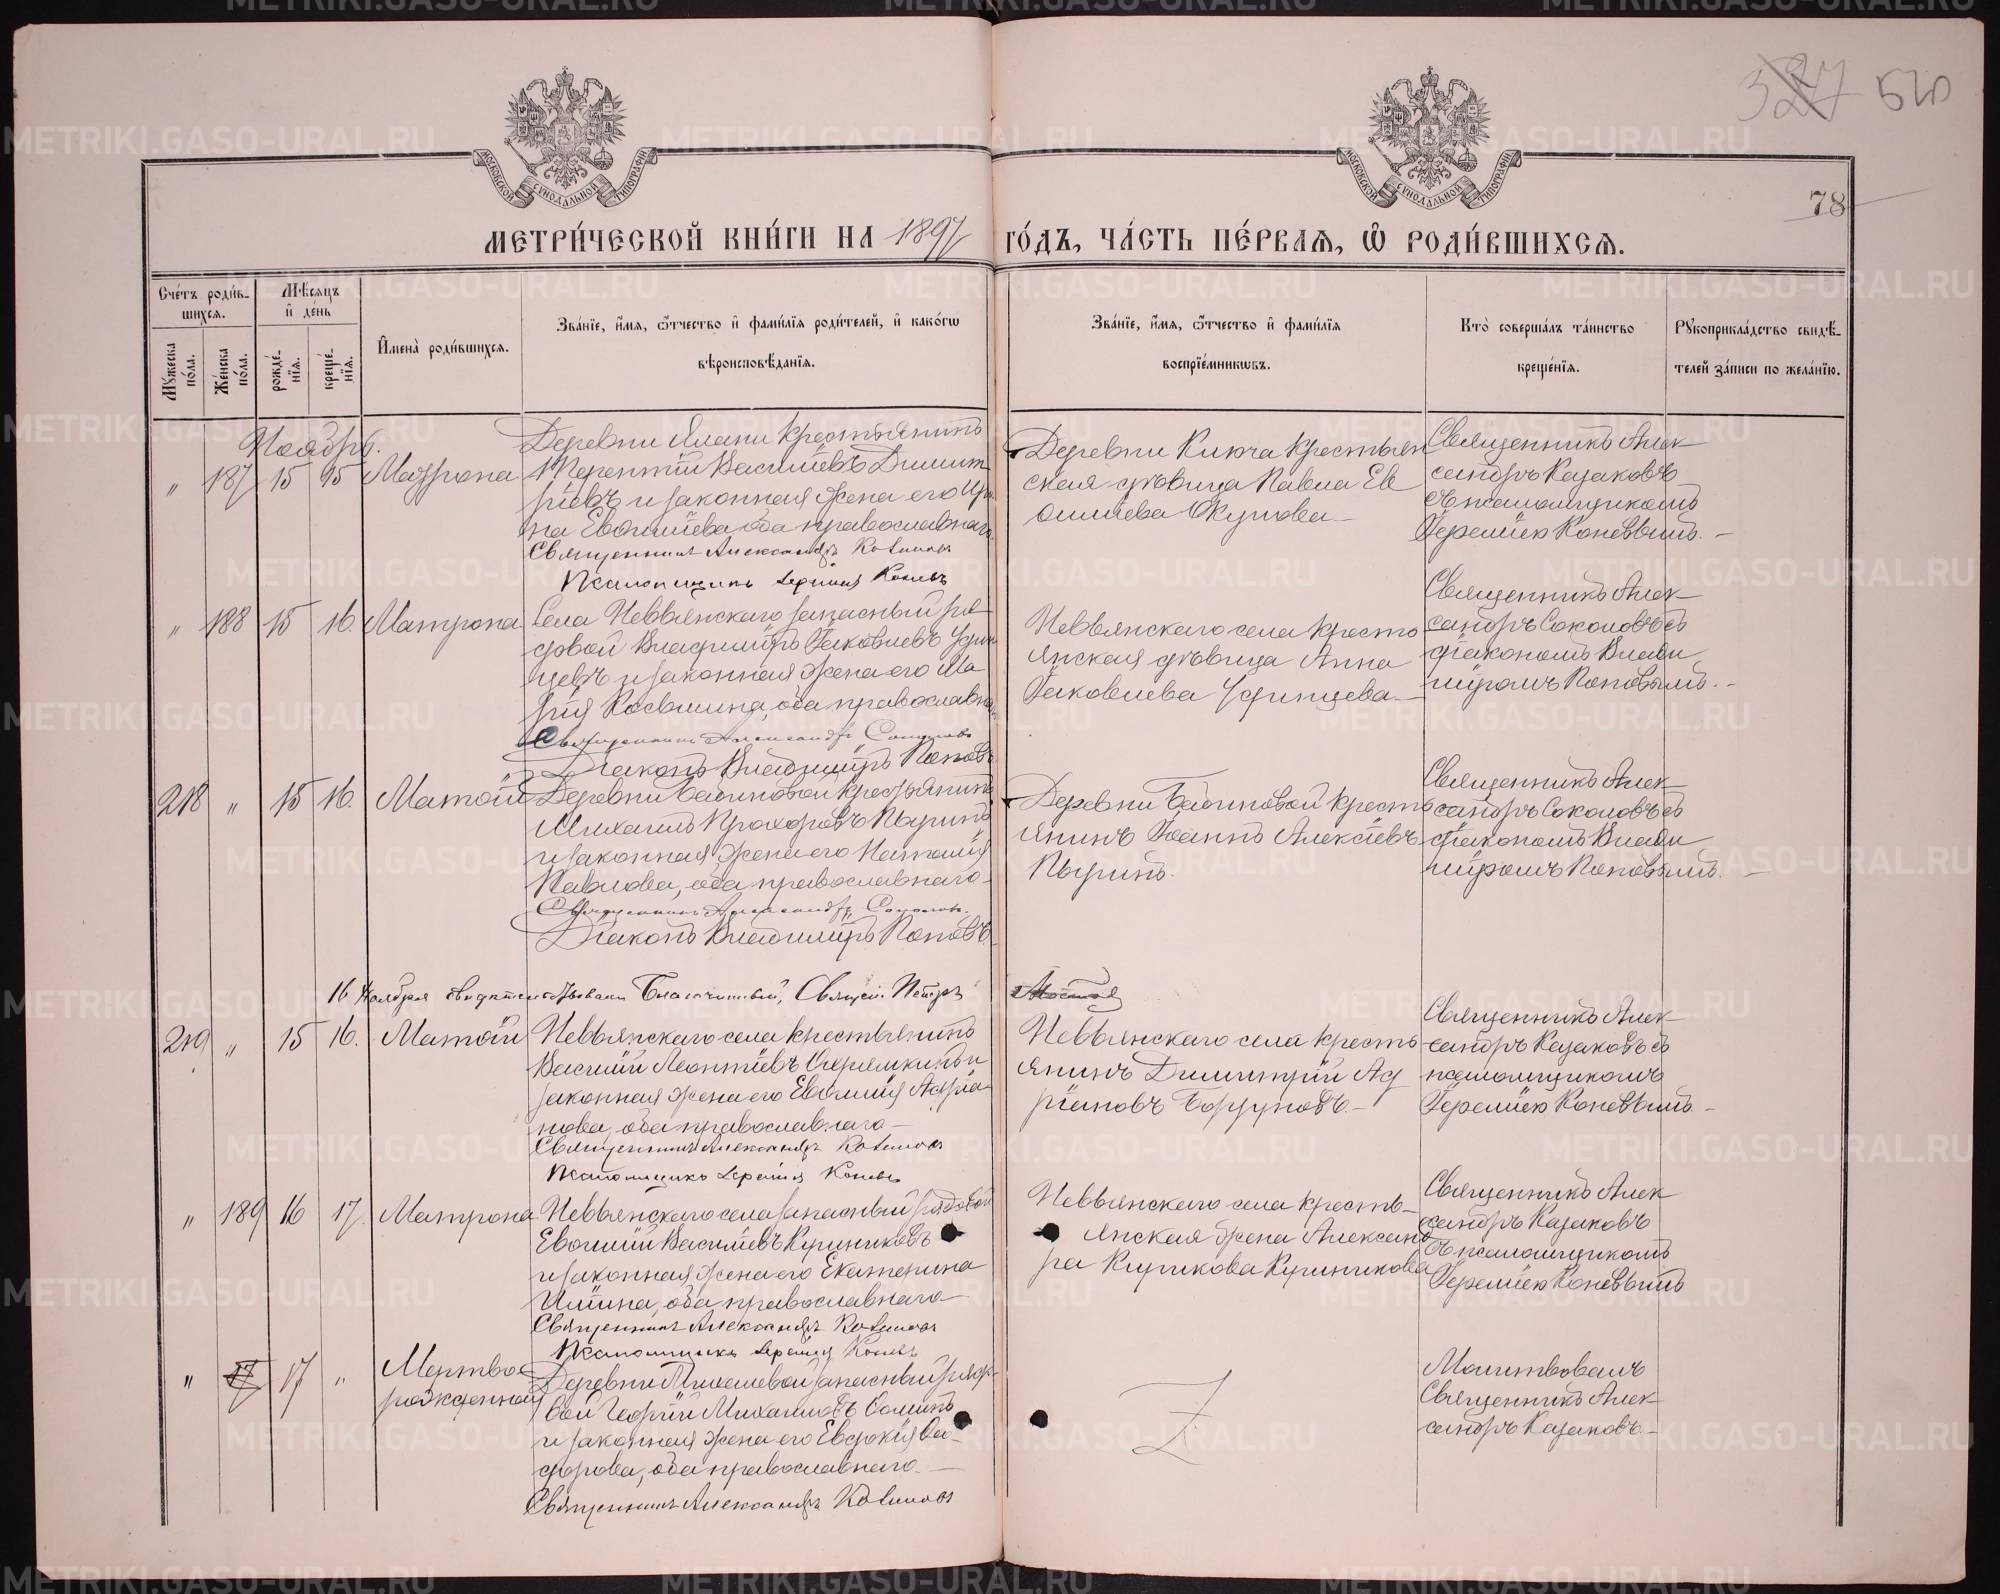 327 520
78
МОСКОВСКОЙ СѴНОДАЛЬНОЙ ТИПОГРАФІИ
МОСКОВСКОЙ СѴНОДАЛЬНОЙ ТИПОГРАФІИ
МЕТРИ́ЧЕСКОЙ КНИ́ГИ НА 1897 ГО́ДЪ, ЧА́СТЬ ПЕ́РВАЯ, Ѽ РОДИ́ВШИХСЯ.
Сче́тъ роди́в-
шихся.
Му́жеска по́ла.
Же́нска по́ла.
Мѣ́сяцъ
и҆ де́нь
рожде́-
нїя.
креще́-
нїя.
И҆мена̀ роди́вшихся.
Зва́нїе, и҆́мя, ѻ҆́тчество и҆ фами́лїя роди́телей, и҆ како́гѡ
вѣроисповѣ́данїя.
Зва́нїе, и҆́мя, ѻ҆́тчество и҆ фами́лїя
воспрїе́мникѡвъ.
Кто̀ соверша́лъ та́инство
креще́нїя.
Рꙋкоприкла́дство свидѣ́-
телей за́писи по жела́нїю.
Ноябрь.
" 187 15 15 Матрона
Деревни Ялани крестьянинъ
Терентій Василіевъ Димит
ріевъ и законная жена его Ири
на Евфиміева, оба православнаго.
Священникъ Александръ Казаковъ
Псаломщикъ Іеремія Коневъ
Деревни Ключа крестьян
ская дѣвица Павла Ев
фиміева Окулова
Священникъ Алек
сандръ Казаковъ
съ псаломщикомъ
Іереміею Коневымъ.
" 188 15 16. Матрона
Села Невьянскаго запасный ря
довой Владиміръ Іаковлевъ Удин
цевъ и законная жена его Ма
рія Косьмина, оба православнаго
Священникъ Александръ Соколовъ
Діаконъ Владиміръ Поповъ
Невьянскаго села кресть
янская дѣвица Анна
Іаковлева Удинцева.
Священникъ Алек
сандръ Соколовъ съ
діакономъ Влади
міромъ Поповымъ.
218 " 15 16. Матѳій
Деревни Бабиновой крестьянинъ
Михаилъ Прохоровъ Пыринъ
и законная жена его Наталія
Павлова, оба православнаго
Священникъ Александръ Соколовъ.
Діаконъ Владиміръ Поповъ
Деревни Бабиновой кресть
янинъ Іоаннъ Алексіевъ
Пыринъ.
Священникъ Алек
сандръ Соколовъ съ
діакономъ Влади
міромъ Поповымъ.
16 Ноября свидѣтельствовалъ Благочинный, Священ. Петръ
219 " 15 16. Матѳій
Невьянскаго села крестьянинъ
Василій Леонтіевъ и
законная жена его Евфимія Адріа
нова, оба православнаго
Священникъ Александръ Казаковъ
Псаломщикъ Іеремія Коневъ
Невьянскаго села кресть
янинъ Димитрій Ад
ріановъ
Священникъ Алек
сандръ Казаковъ съ
псаломщикомъ
Іереміею Коневымъ.
" 189 16 17. Матрона
Невьянскаго села запасный рядовой
Евфимій Василіевъ
и законная жена его Екатерина
Ильина, оба православнаго
Священникъ Александръ Казаковъ
Псаломщикъ Іеремія Коневъ
Невьянскаго села кресть-
янская жена Александ
ра
Священникъ Алек
сандръ Казаковъ
съ псаломщикомъ
Іереміею Коневымъ
" 17 "
Мертво
рожденный
Деревни запасный рядо
вой Георгій Михаиловъ Соминъ
и законная жена его Евдокія
дорова, оба православнаго.
Священникъ Александръ Казаковъ
Молитвовалъ
Священникъ Алек-
сандръ Казаковъ
METRIKI.GASO-URAL.RU